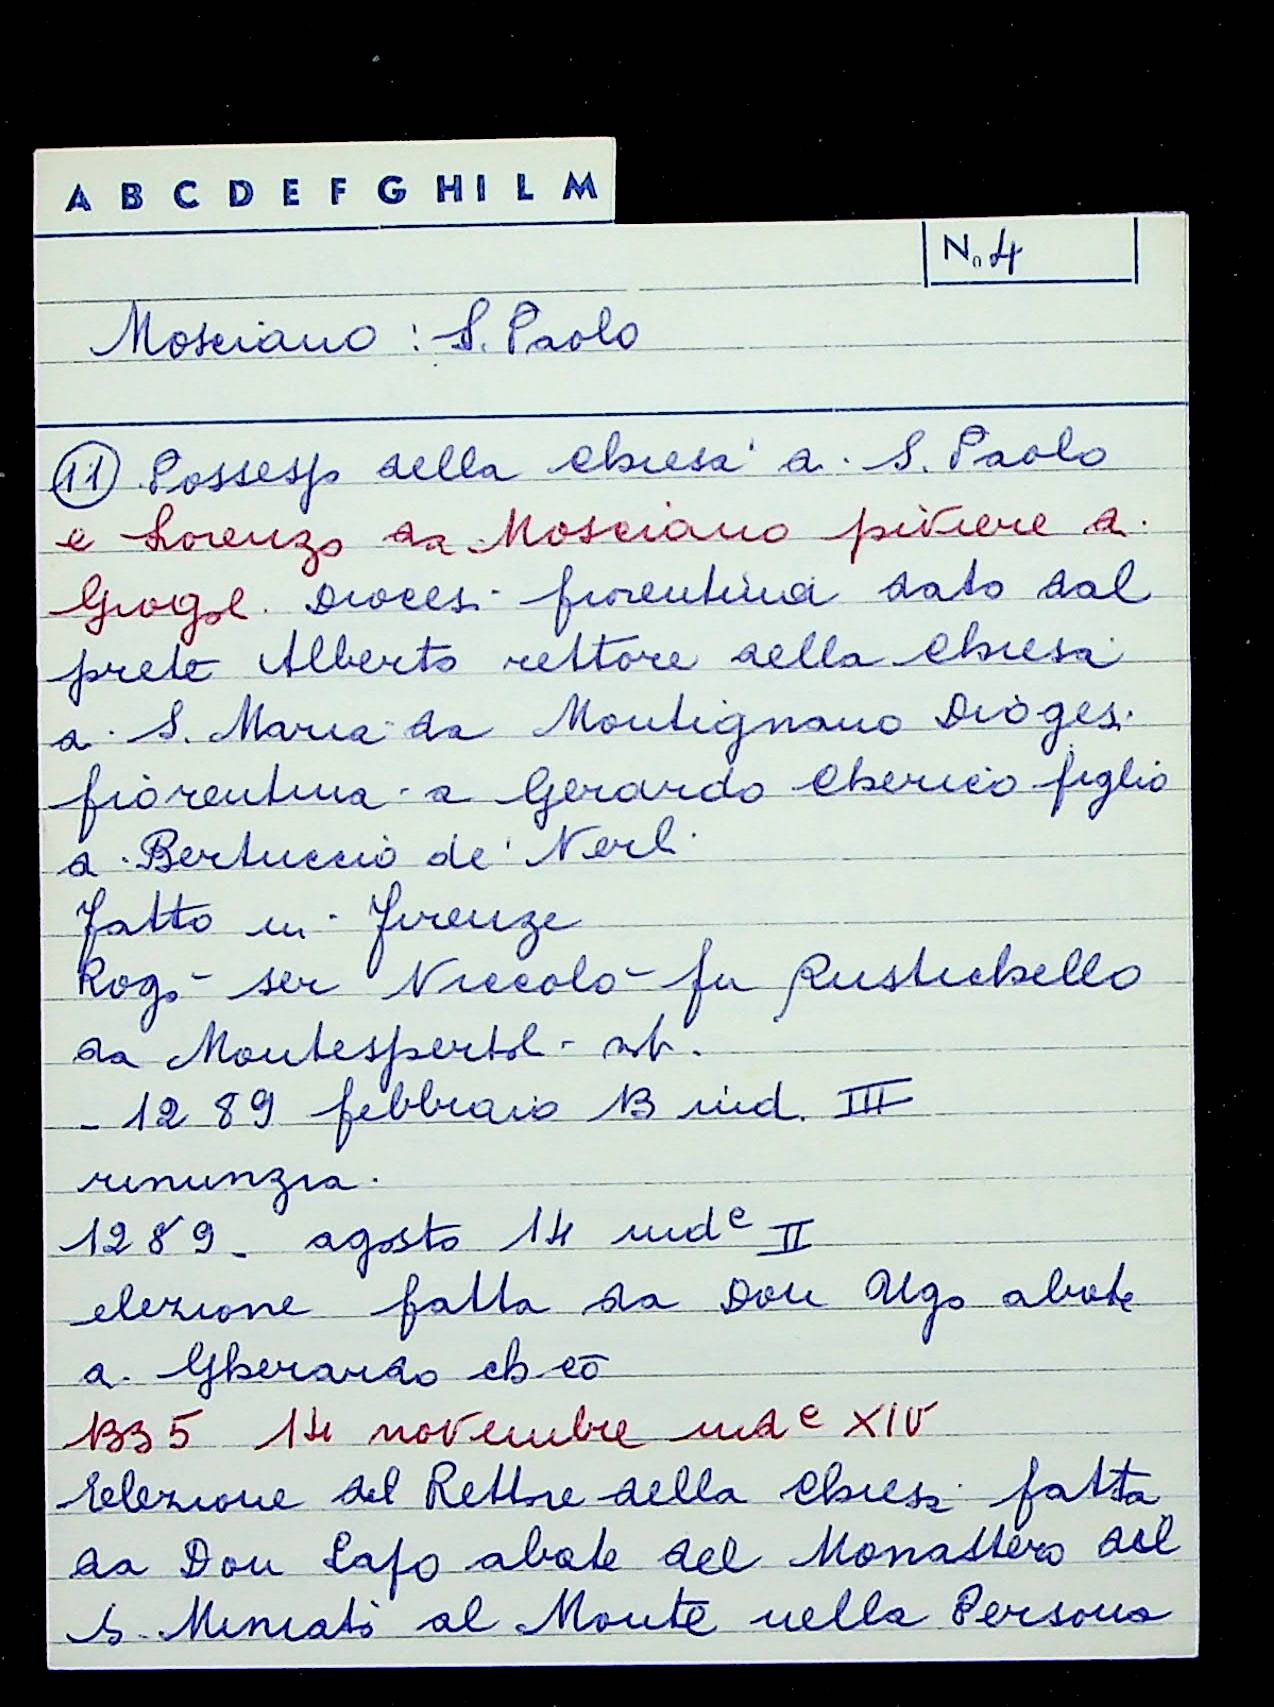 A B C D E F G H I L M
N. 4
Mosciano : S. Paolo
11 Possesso della Chiesa di S. Paolo
e Lorenzo da Mosciano piviere di
Giogoli Dioces. fiorentina dato dal
prete Alberto rettore della Chiesa
di S. Maria da Montignano Dioges.
fiorentina a Gerardo Cherico figlio
di Bertuccio de' Nerli
Fatto in Firenze
Rogò ser Niccolò fu Rustichello
da Montespertoli
- 1289 febbraio 13 ind. III
rinunzia.
1289 - agosto 14 inde II
elezione fatta da Don Ugo abate
di Gherardo chcō
1335 14 novembre inde XIV
Elezione del Rettore della Chiesa fatta
da Don Lapo abate del Monastero del
S. Miniato al Monte nella Persona